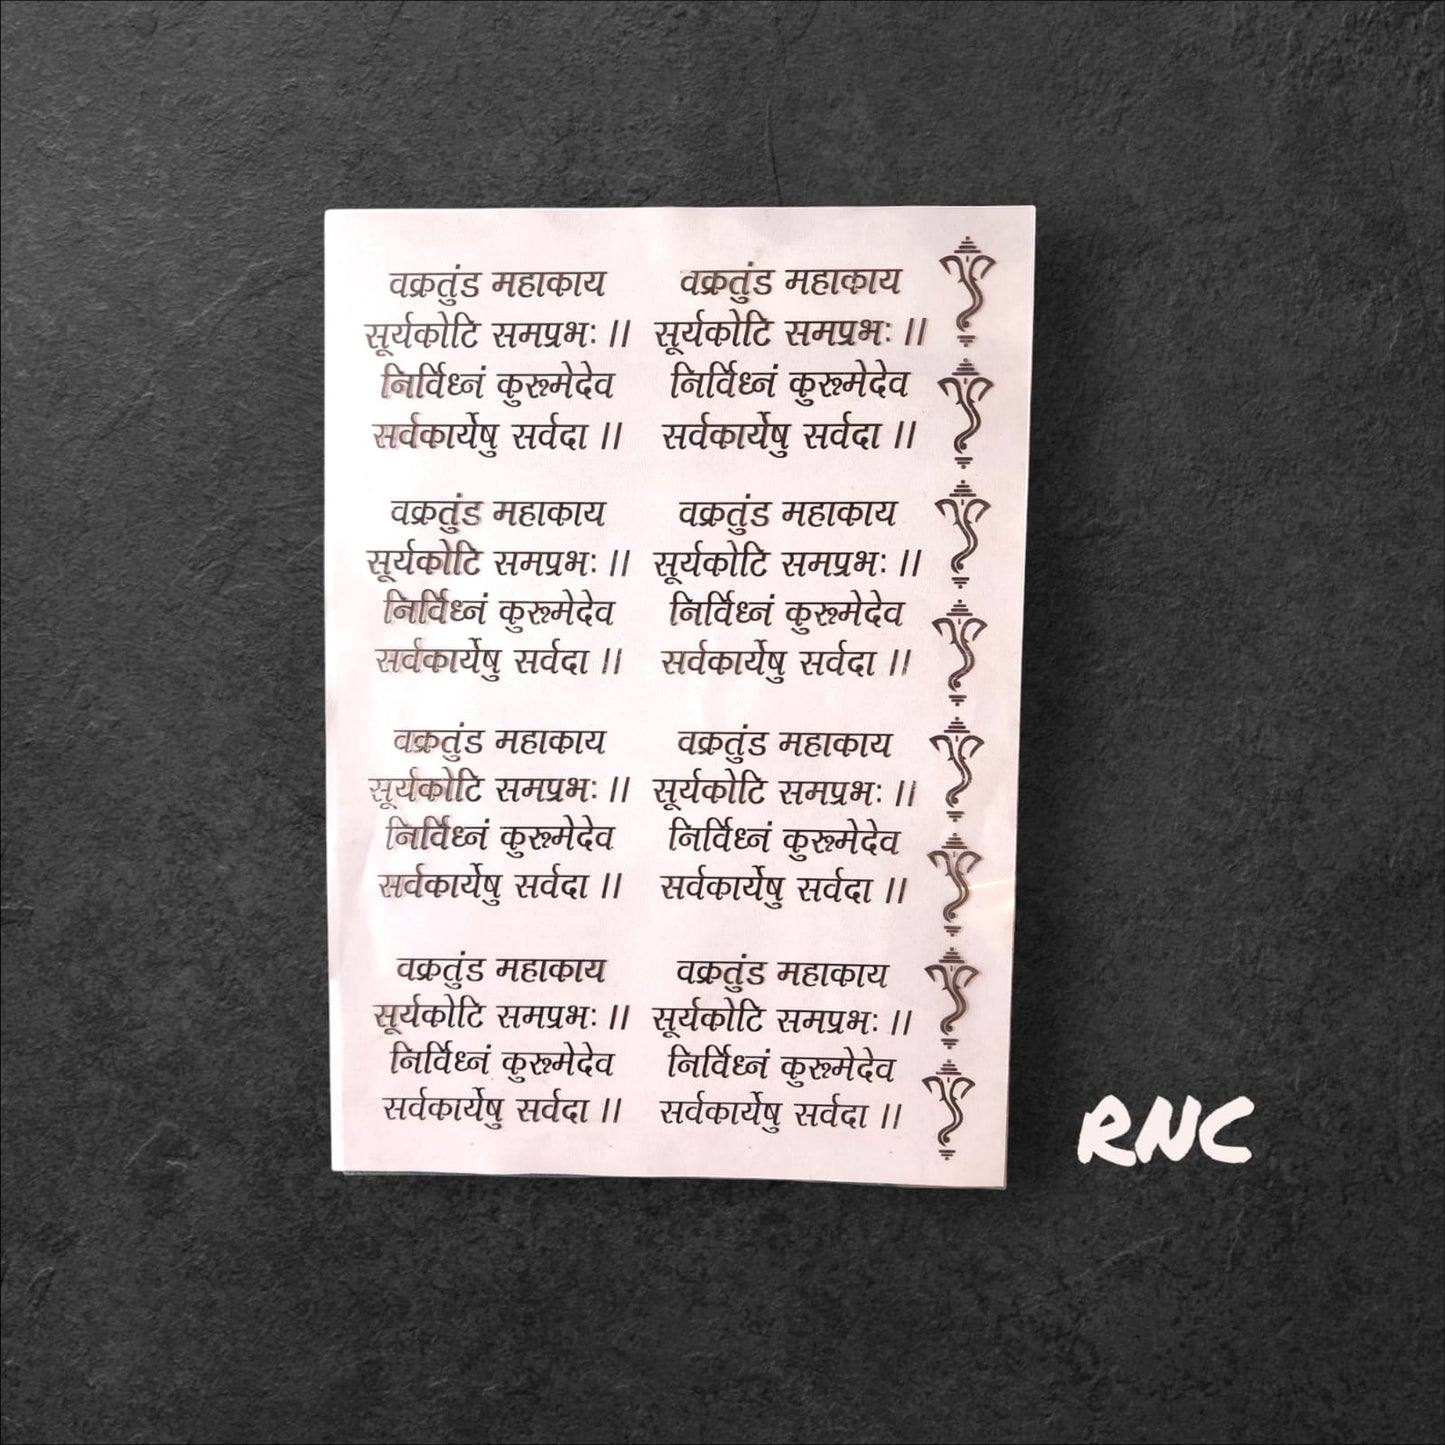 वक्रतुंड महाकाय
सूर्यकोटि समप्रभः ।।
निर्विध्नं कुरुमेदेव
सर्वकार्येषु सर्वदा ।।
वक्रतुंड महाकाय
सूर्यकोटि समप्रभः ।।
निर्विध्नं कुरुमेदेव
सर्वकार्येषु सर्वदा ।।
वक्रतुंड महाकाय
सूर्यकोटि समप्रभः ।।
निर्विध्नं कुरुमेदेव
सर्वकार्येषु सर्वदा ।।
वक्रतुंड महाकाय
सूर्यकोटि समप्रभः ।।
निर्विध्नं कुरुमेदेव
सर्वकार्येषु सर्वदा ।।
वक्रतुंड महाकाय
सूर्यकोटि समप्रभः ।।
निर्विध्नं कुरुमेदेव
सर्वकार्येषु सर्वदा ।।
वक्रतुंड महाकाय
सूर्यकोटि समप्रभः ।।
निर्विध्नं कुरुमेदेव
सर्वकार्येषु सर्वदा ।।
वक्रतुंड महाकाय
सूर्यकोटि समप्रभः ।।
निर्विध्नं कुरुमेदेव
सर्वकार्येषु सर्वदा ।।
वक्रतुंड महाकाय
सूर्यकोटि समप्रभः ।।
निर्विध्नं कुरुमेदेव
सर्वकार्येषु सर्वदा ।।
RNC